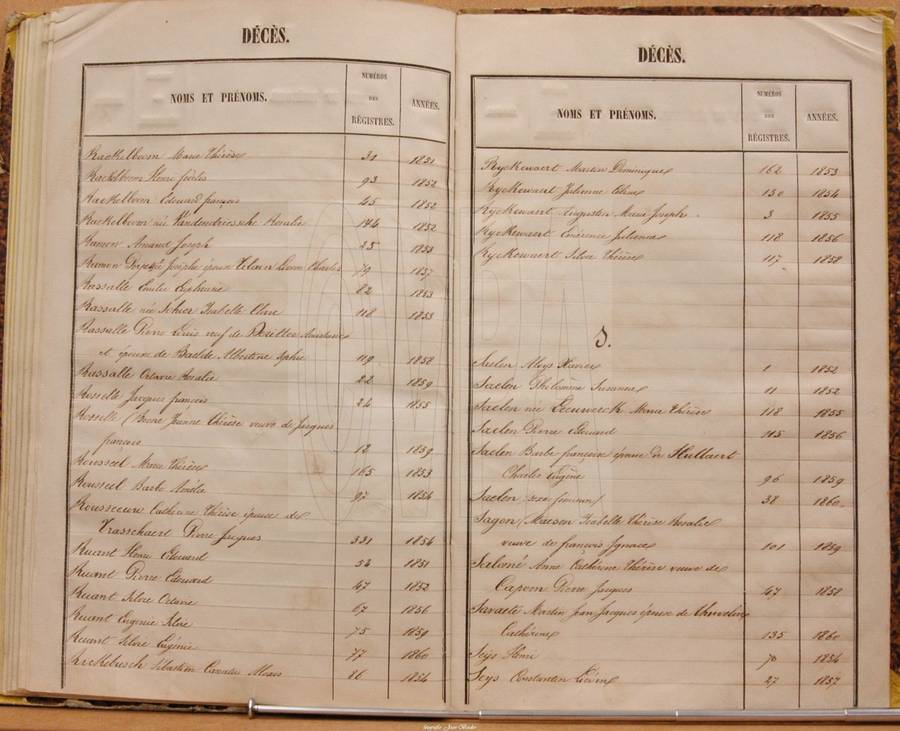 DÉCÈS.
NOMS ET PRÉNOMS.
NUMÉROS
DES
RÉGISTRES.
ANNÉES.
Rackelboom Marie Thérèse 31 1851
Rackelboom Henri 93 1852
Rackelboom Edouard françois 45 1852
Rackelboom née Vandendriessche Rosalie 174 1852
Ramon Amand Joseph 25 1853
Ramon Josephe épouse Charles 79 1857
Rassalle Emélie Euphrasie 82 1853
Rassalle née Isabelle Clare 118 1855
Rassalle Pierre Louis veuf de Constance
et épouse de Albertine Sophie 119 1858
Rassalle Octavie Rosalie 22 1859
Rosselle Jacques françois 24 1855
Rosselle Jeanne Thérèse veuve de Jacques
françois 12 1859
Rousseel Marie Thérèse 165 1853
Rousseel Barbe Amélie 97 1854
Catherine Thérèse épouse de
Vrasschaert Pierre Jacques 331 1854
Ruant Henri Edouard 54 1851
Ruant Pierre Edouard 47 1852
Ruant Silvie Octavie 67 1856
Ruant Eugenie Silvie 75 1859
Ruant Silvie Eugénie 77 1860
Ryckebusch Sébastien 86 1854
DÉCÈS.
NOMS ET PRÉNOMS.
NUMÉROS
DES
RÉGISTRES.
ANNÉES.
Ryckewaert Martin Dominique 162 1853
Ryckewaert Julienne 130 1854
Ryckewaert Augustin Marie Joseph 3 1855
Ryckewaert Emérence Julienne 118 1856
Ryckewaert Silvie Thérèse 117 1858
S.
Saelen Aloys Xavier 1 1852
Saelen Philomène Suzanne 11 1852
Saelen née Leeuwerck Marie Thérèse 118 1855
Saelen Pierre Edouard 115 1856
Saelen Barbe françoise épouse de Hullaert
Charles Eugène 96 1859
Saelen sexe féminin 38 1860
Sagon Maeson Isabelle Thérèse Rosalie
veuve de françois Ignace 101 1859
Salomé Anne Cathérine Thérèse veuve de
Capoen Pierre Jacques 47 1858
Martin Jean Jacques épouse de
Cathérine 135 1860
Seys Henri 70 1854
Seys Constantin 27 1857